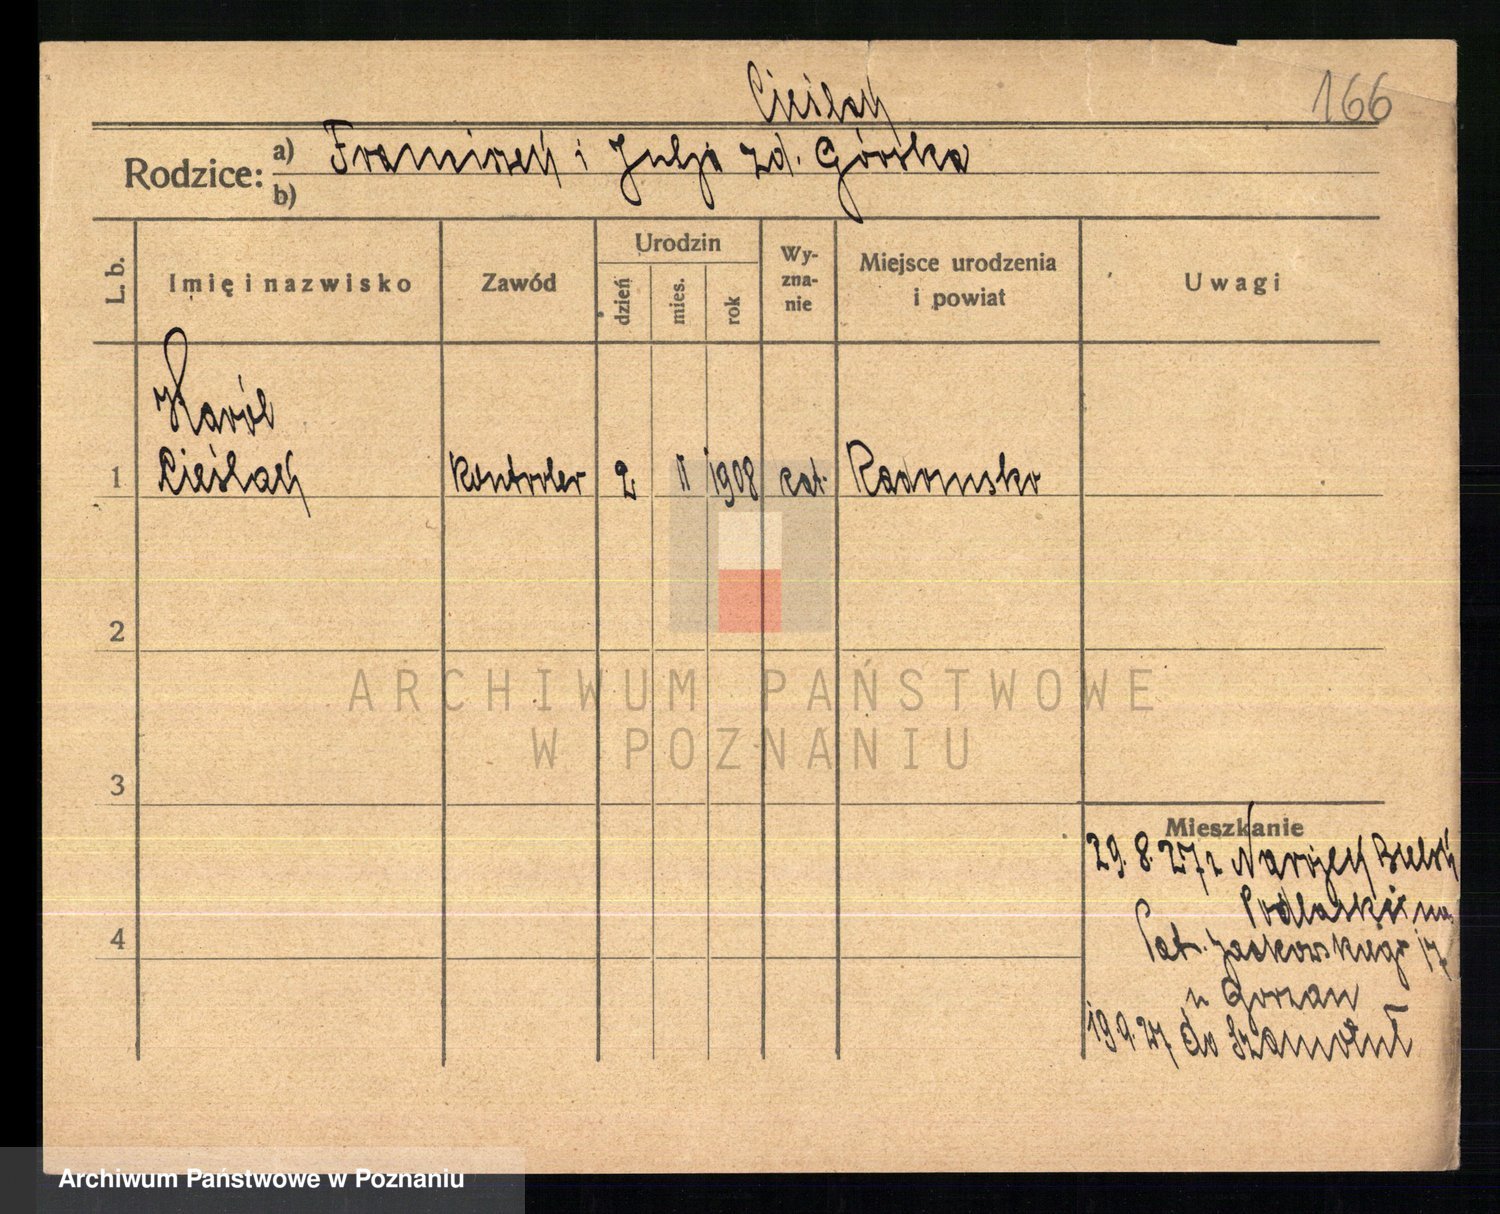 Cieślak
166
Rodzice: a) Franciszek i Julja zd. Górska
b)
L. b. Imię i nazwisko Zawód Urodzin dzień mies. rok Wyznanie Miejsce urodzenia i powiat Uwagi
Karól
1 Cieślak kontroler 2 II 1908 kat. Radomsko
2
ARCHIWUM PAŃSTWOWE
W POZNANIU
3
Mieszkanie
29. 8. 27 z Bielsk
Podlaski na
4
Pat. Jackowskiego 17
u Gorzan
19 9. 27 do Szamotuł
Archiwum Państwowe w Poznaniu